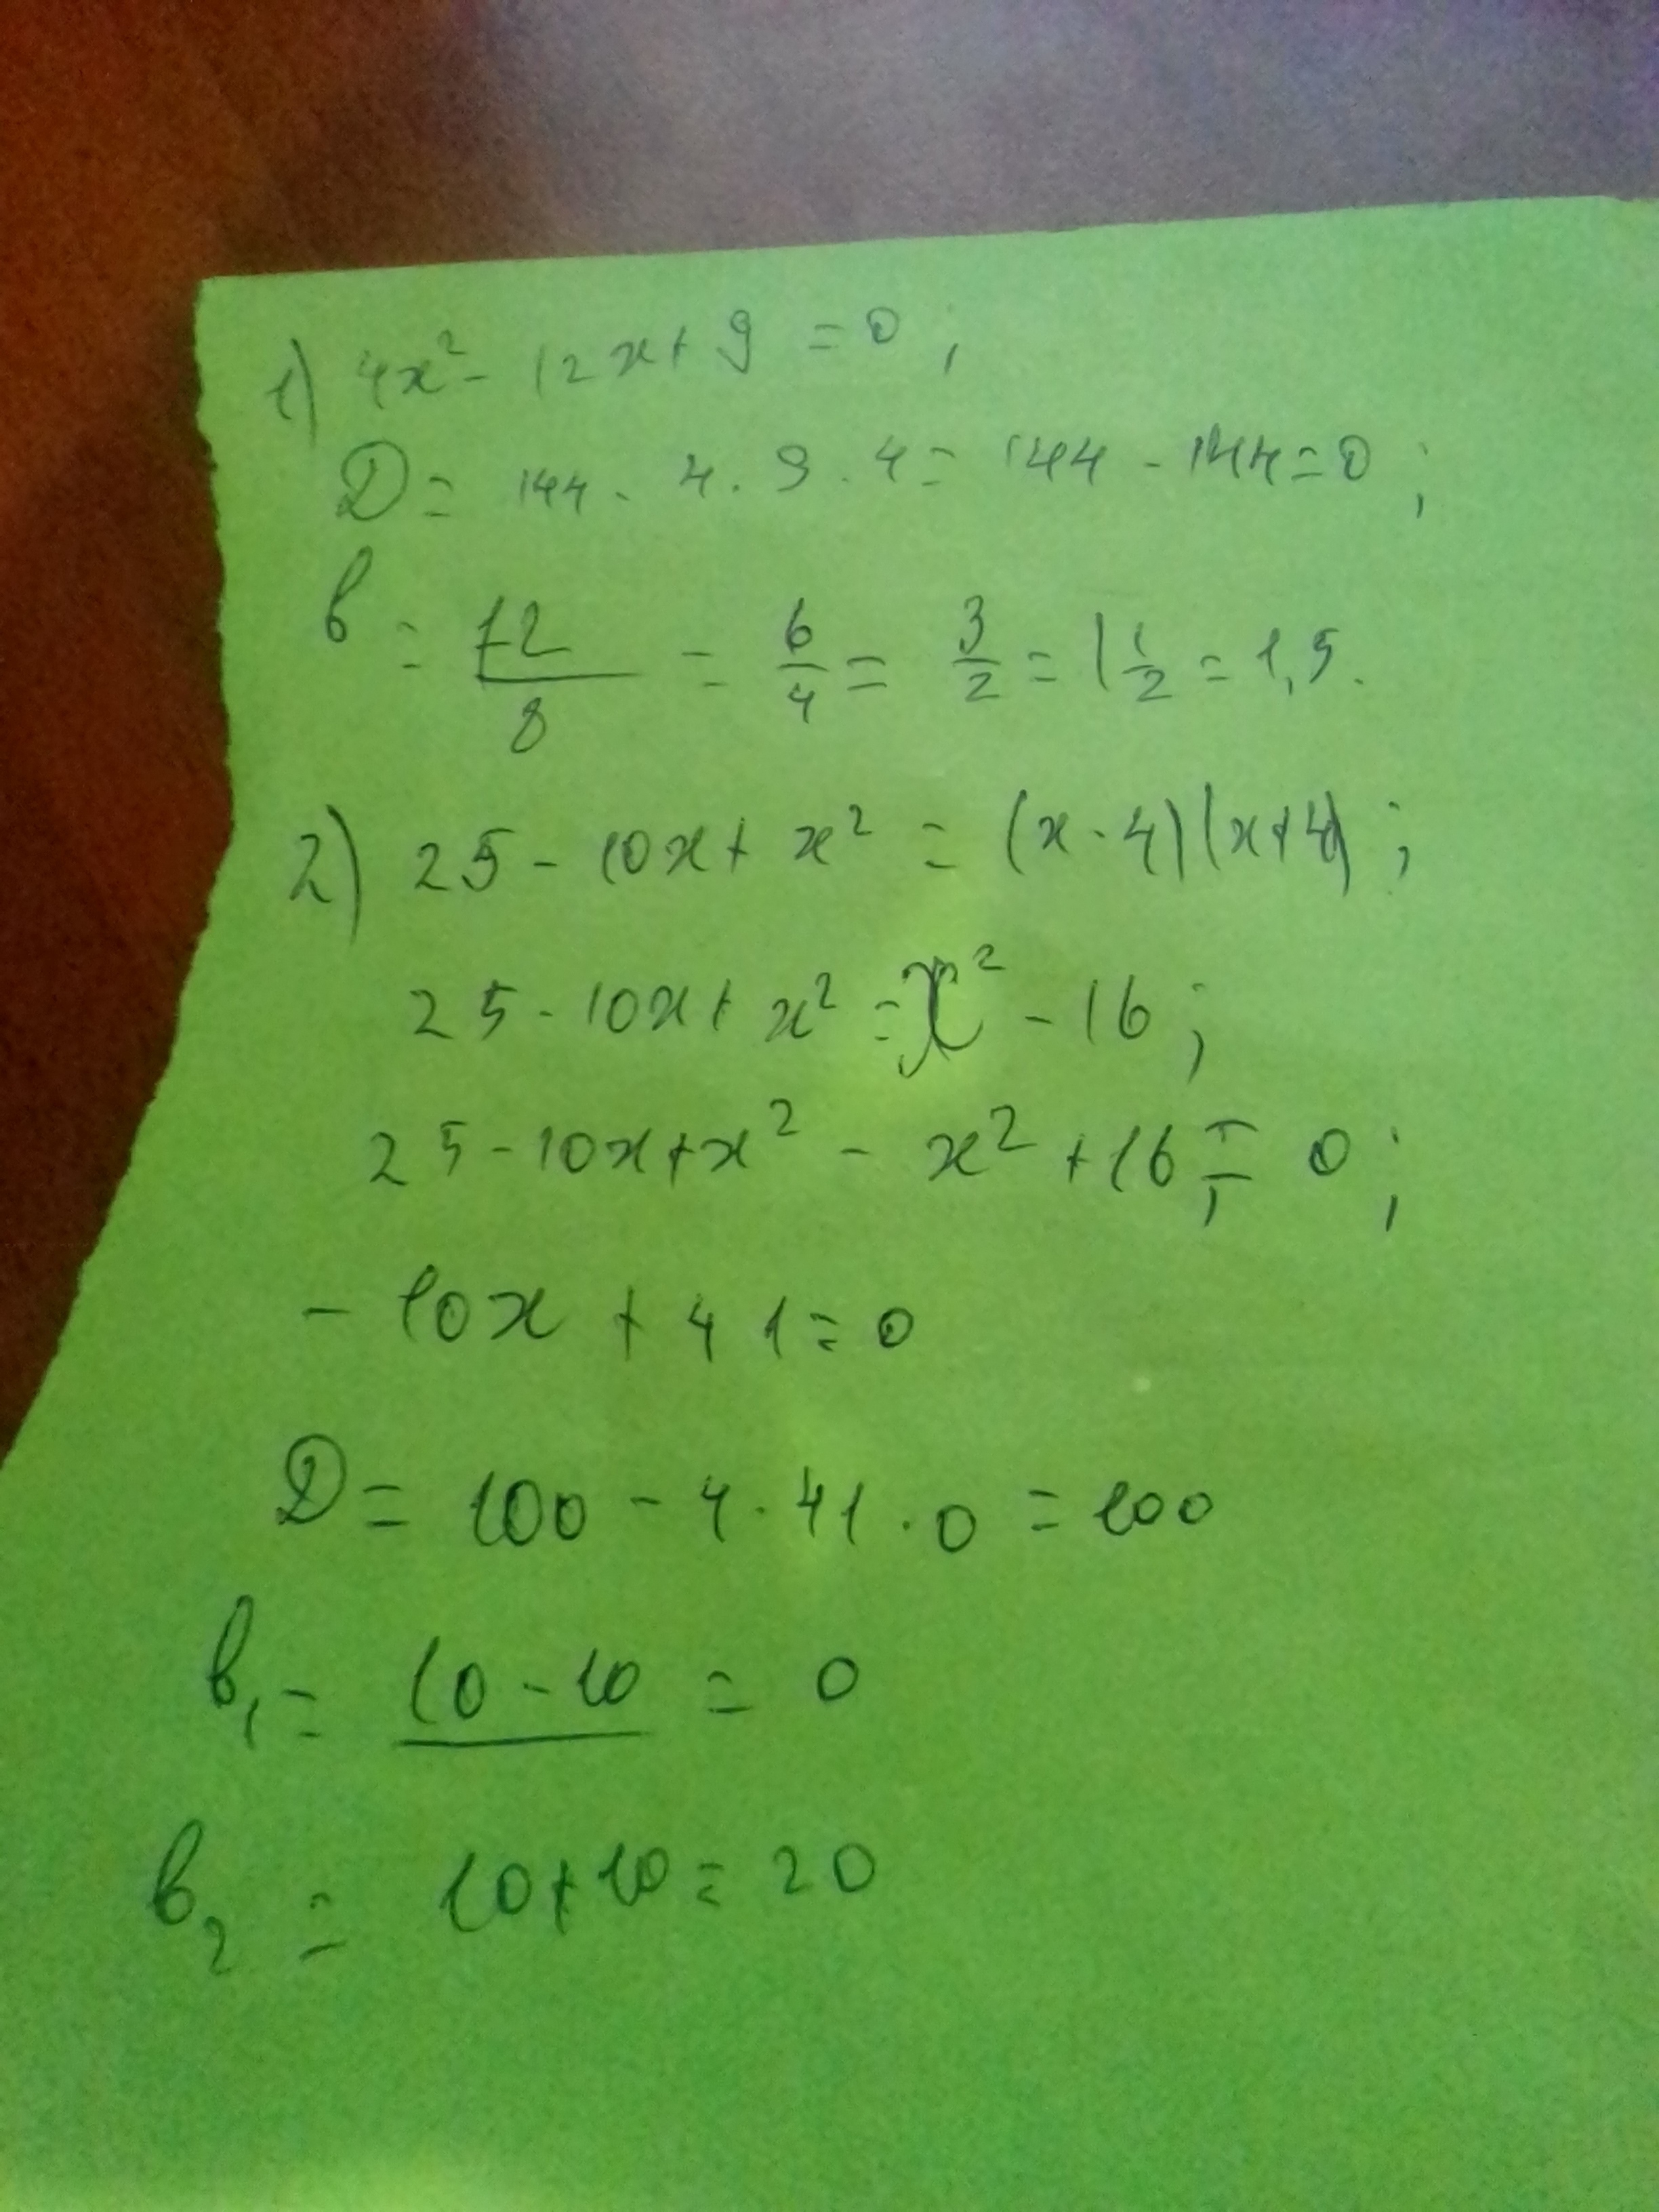 1) 4x² - 12x + 9 = 0;
D = 144 - 4 · 9 · 4 = 144 - 144 = 0;
в = 12/8 = 6/4 = 3/2 = 1 1/2 = 1,5.
2) 25 - 10x + x² = (x - 4)(x + 4);
25 - 10x + x² = x² - 16;
25 - 10x + x² - x² + 16 = 0;
- 10x + 41 = 0
D = 100 - 4 · 41 · 0 = 100
в₁ = 10 - 10 = 0
в₂ = 10 + 10 = 20